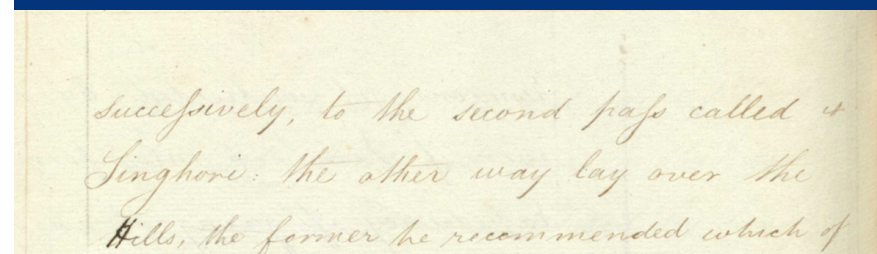 successively, to the second pass called
Singhori: the other way lay over the
Hills, the former he recommended which of